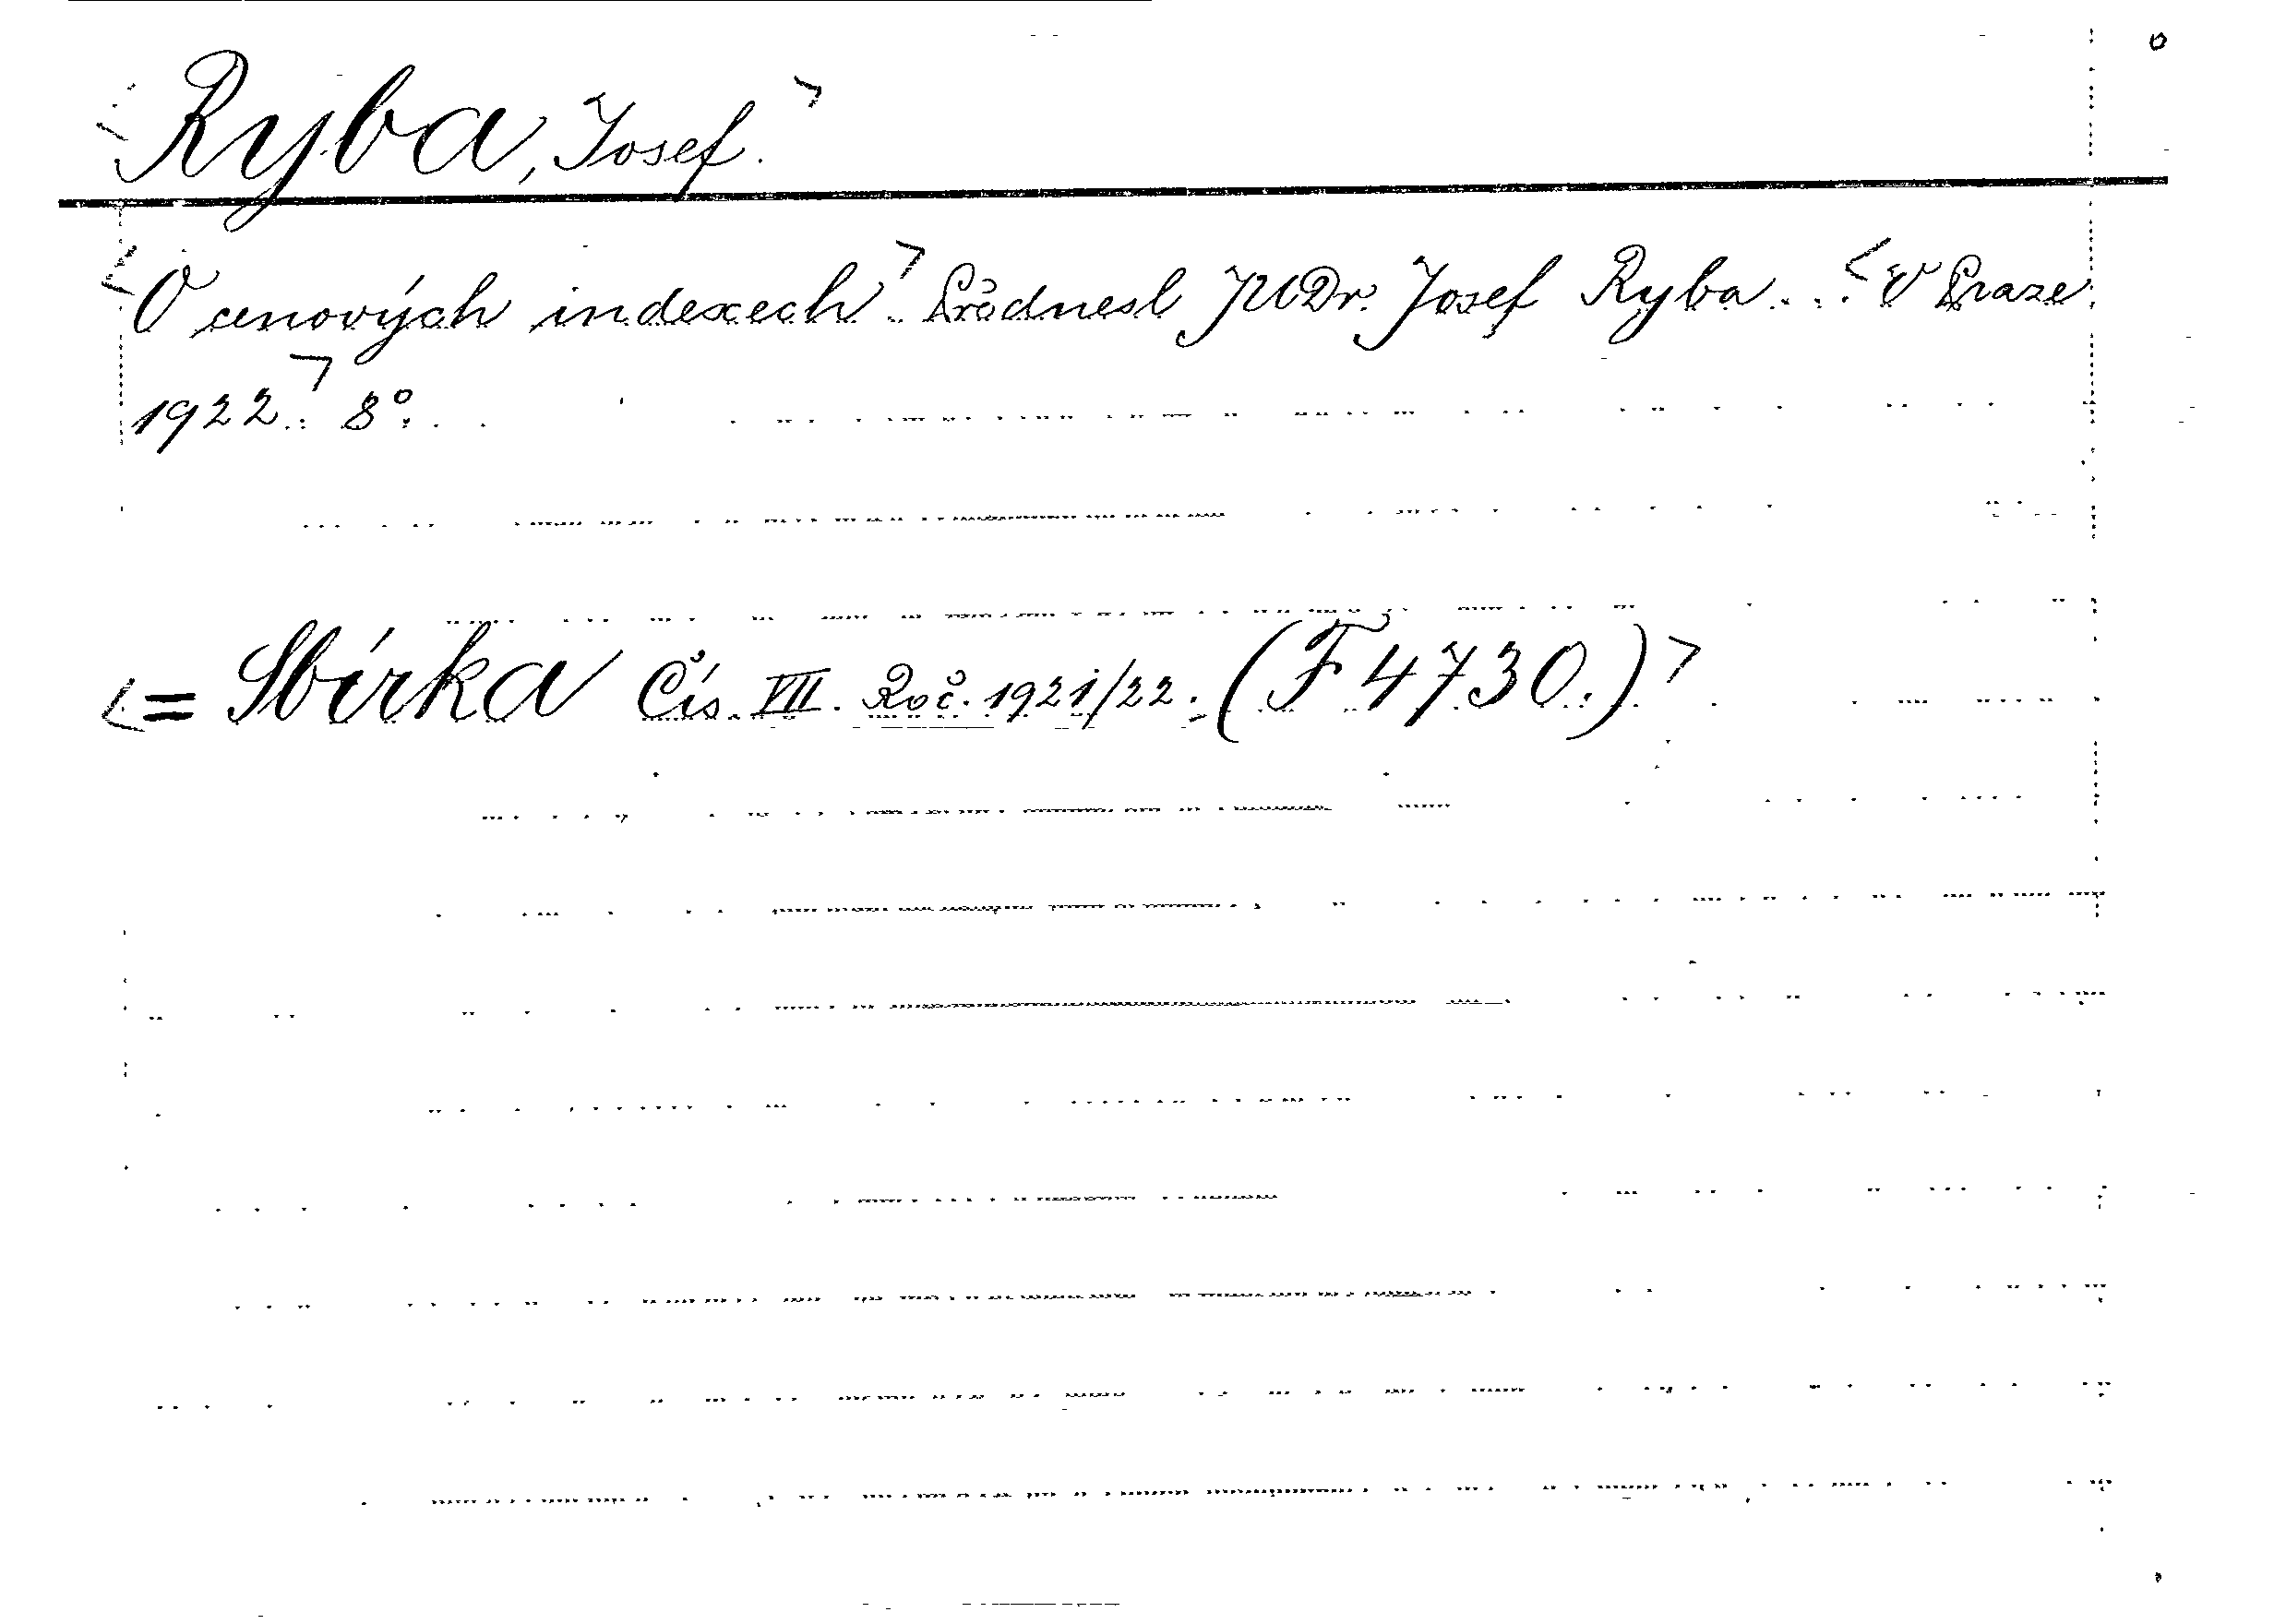 Ryba, Josef.
O cenových indexech. Přednesl JUDr. Josef Ryba... V Praze
1922. 8°.
= Sbírka Čís. VII. Roč. 1921/22. (F 4730.)